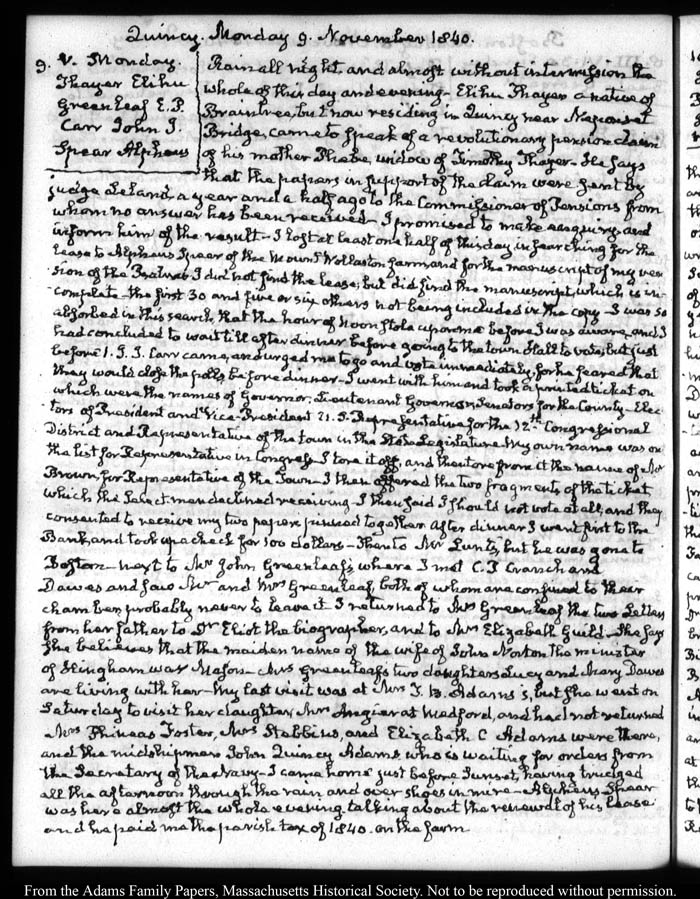 Quincy. Monday 9. November 1840.
9. V. Monday.
Thayer Elihu
Greenleaf E. P.
Carr John J.
Spear Alpheus
Rain all night, and almost without intermission the
whole of this day and evening. Elihu Thayer a native of
Braintree, but now residing in Quincy near Neponset
Bridge, came to speak of a revolutionary pension claim
of his mother Phebe, widow of Timothy Thayer. He says
that the papers in support of the claim were sent by
judge Leland a year and a half ago to the Commissioner of Pensions from
whom no answer has been received. I promised to make enquiry and
inform him of the result. I lost at least one half of this day in searching for the
lease to Alpheus Spear of the Mount Wollaston farm, and for the manuscript of my ver
sion of the Psalms. I did not find the lease; but did find the manuscript, which is in-
complete. the first 30 and five or six others not being included in the copy. I was so
absorbed in this search, that the hour of Noon stole upon me before I was aware, and I
had concluded to wait till after dinner before going to the town Hall to vote; but just
before 1. J. J. Carr came, and urged me to go and vote immediately, for he feared that
they would close the polls before dinner. I went with him and took a printed ticket on
which were the names of Governor, Lieutenant Governor, Senators for the County. Elec-
tors of President and Vice-President U. S. Representative for the 12th Congressional
District and Representative of the town in the State Legislature. My own name was on
the list for Representative in Congress. I tore it off, and then tore from it the name of Mr
Brown, for Representative of the Town. I then offered the two fragments of the ticket,
which the Select men declined receiving. I then said I should not vote at all; and they
consented to receive my two papers pinned together. After dinner I went first to the
Bank, and took up a check for 500 dollars. Then to Mr Lunt's, but he was gone to
Boston. next to Mr John Greenleaf's, where I met C. J. Cranch and
Dawes and saw Mr. and Mrs Greenleaf, both of whom are confined to their
chamber, probably never to leave it. I returned to Mrs Greenleaf the two Letters
from her father to Dr Eliot the biographer, and to Mrs Elizabeth Guild. She says
she believes that the maiden name of the wife of John Norton the minister
of Hingham was Mason. Mrs Greenleaf's two daughters Lucy and Mary Dawes
are living with her. My last visit was at Mrs T. B. Adams's, but she went on
Saturday to visit her daughter Mrs Angier at Medford, and had not returned
Mrs Phineas Foster, Mrs Stebbins, and Elizabeth C Adams were there,
and the midshipman John Quincy Adams who is waiting for orders from
the Secretary of the Navy. I came home just before Sunset, having trudged
all the afternoon through the rain and over shoes in mire. Alpheus Spear
was here almost the whole evening talking about the renewal of his lease
and he paid me the parish tax of 1840. on the farm
From the Adams Family Papers, Massachusetts Historical Society. Not to be reproduced without permission.